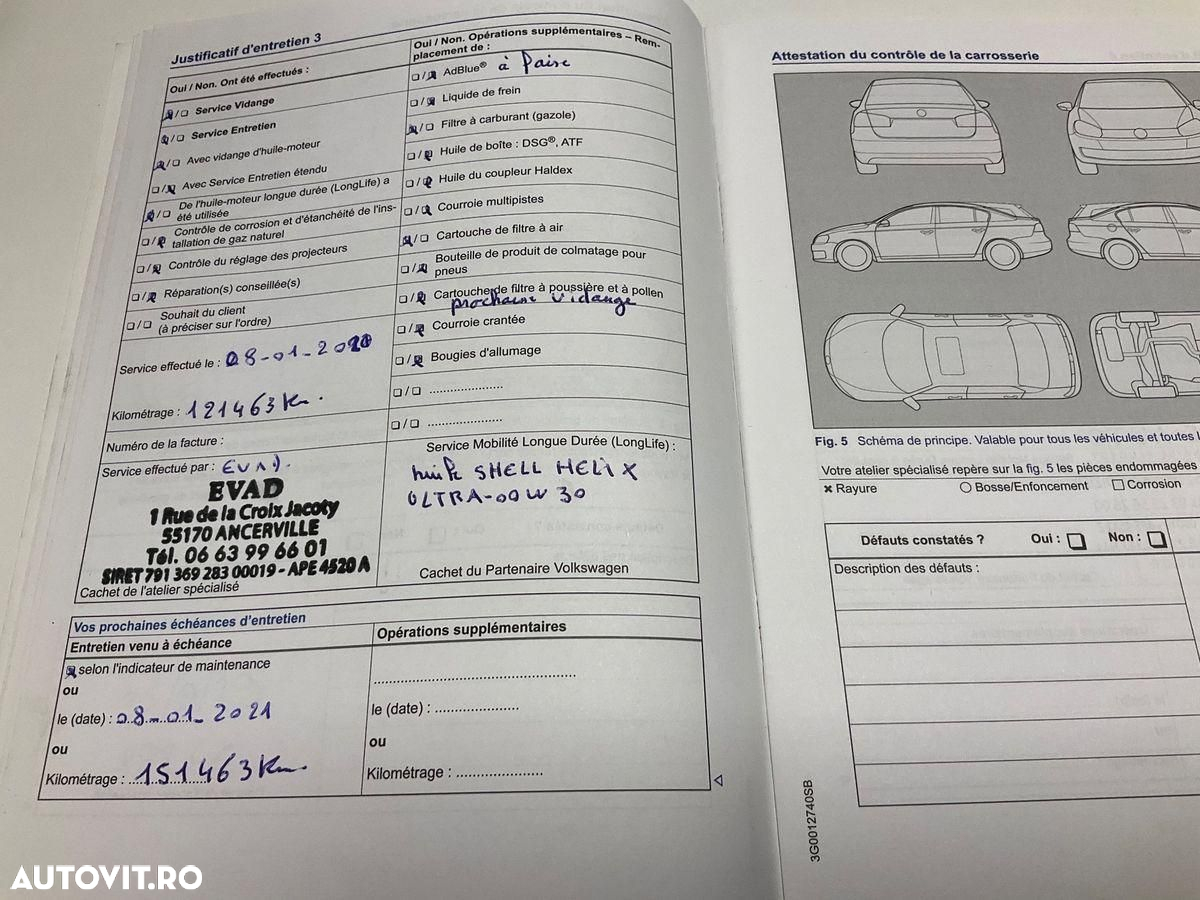 Justificatif d'entretien 3
Oui / Non. Ont été effectués :
☒/☐ Service Vidange
☒/☐ Service Entretien
☒/☐ Avec vidange d'huile-moteur
☐/☒ Avec Service Entretien étendu
☒/☐ De l'huile-moteur longue durée (LongLife) a
été utilisée
☐/☒ Contrôle de corrosion et d'étanchéité de l'ins-
tallation de gaz naturel
☐/☒ Contrôle du réglage des projecteurs
☐/☒ Réparation(s) conseillée(s)
☐/☐ Souhait du client
(à préciser sur l'ordre)
Service effectué le : 08-01-2020
Kilométrage : 121463 Km.
Numéro de la facture :
Service effectué par : EVAD.
EVAD
1 Rue de la Croix Jacoty
55170 ANCERVILLE
Tél. 06 63 99 66 01
SIRET 791 369 283 00019 - APE 4520 A
Cachet de l'atelier spécialisé
Oui / Non. Opérations supplémentaires – Rem-
placement de :
☐/☒ AdBlue® à faire
☐/☒ Liquide de frein
☒/☐ Filtre à carburant (gazole)
☐/☒ Huile de boîte : DSG®, ATF
☐/☒ Huile du coupleur Haldex
☐/☒ Courroie multipistes
☒/☐ Cartouche de filtre à air
☐/☒ Bouteille de produit de colmatage pour
pneus
☐/☒ Cartouche de filtre à poussière et à pollen
prochaine vidange
☐/☒ Courroie crantée
☐/☒ Bougies d'allumage
☐/☐ .....................
☐/☐ .....................
Service Mobilité Longue Durée (LongLife) :
huile SHELL HELIX
ULTRA-00W30
Cachet du Partenaire Volkswagen
Vos prochaines échéances d'entretien
Entretien venu à échéance
☒ selon l'indicateur de maintenance
ou
le (date) : 08-01-2021
ou
Kilométrage : 151463 Km
Opérations supplémentaires
..................................................
le (date) : .....................
ou
Kilométrage : .....................
Attestation du contrôle de la carrosserie
Fig. 5 Schéma de principe. Valable pour tous les véhicules et toutes l
Votre atelier spécialisé repère sur la fig. 5 les pièces endommagées
✖ Rayure ○ Bosse/Enfoncement ☐ Corrosion
Défauts constatés ? Oui : ☐ Non : ☐
Description des défauts :
3G0012740SB
AUTOVIT.RO